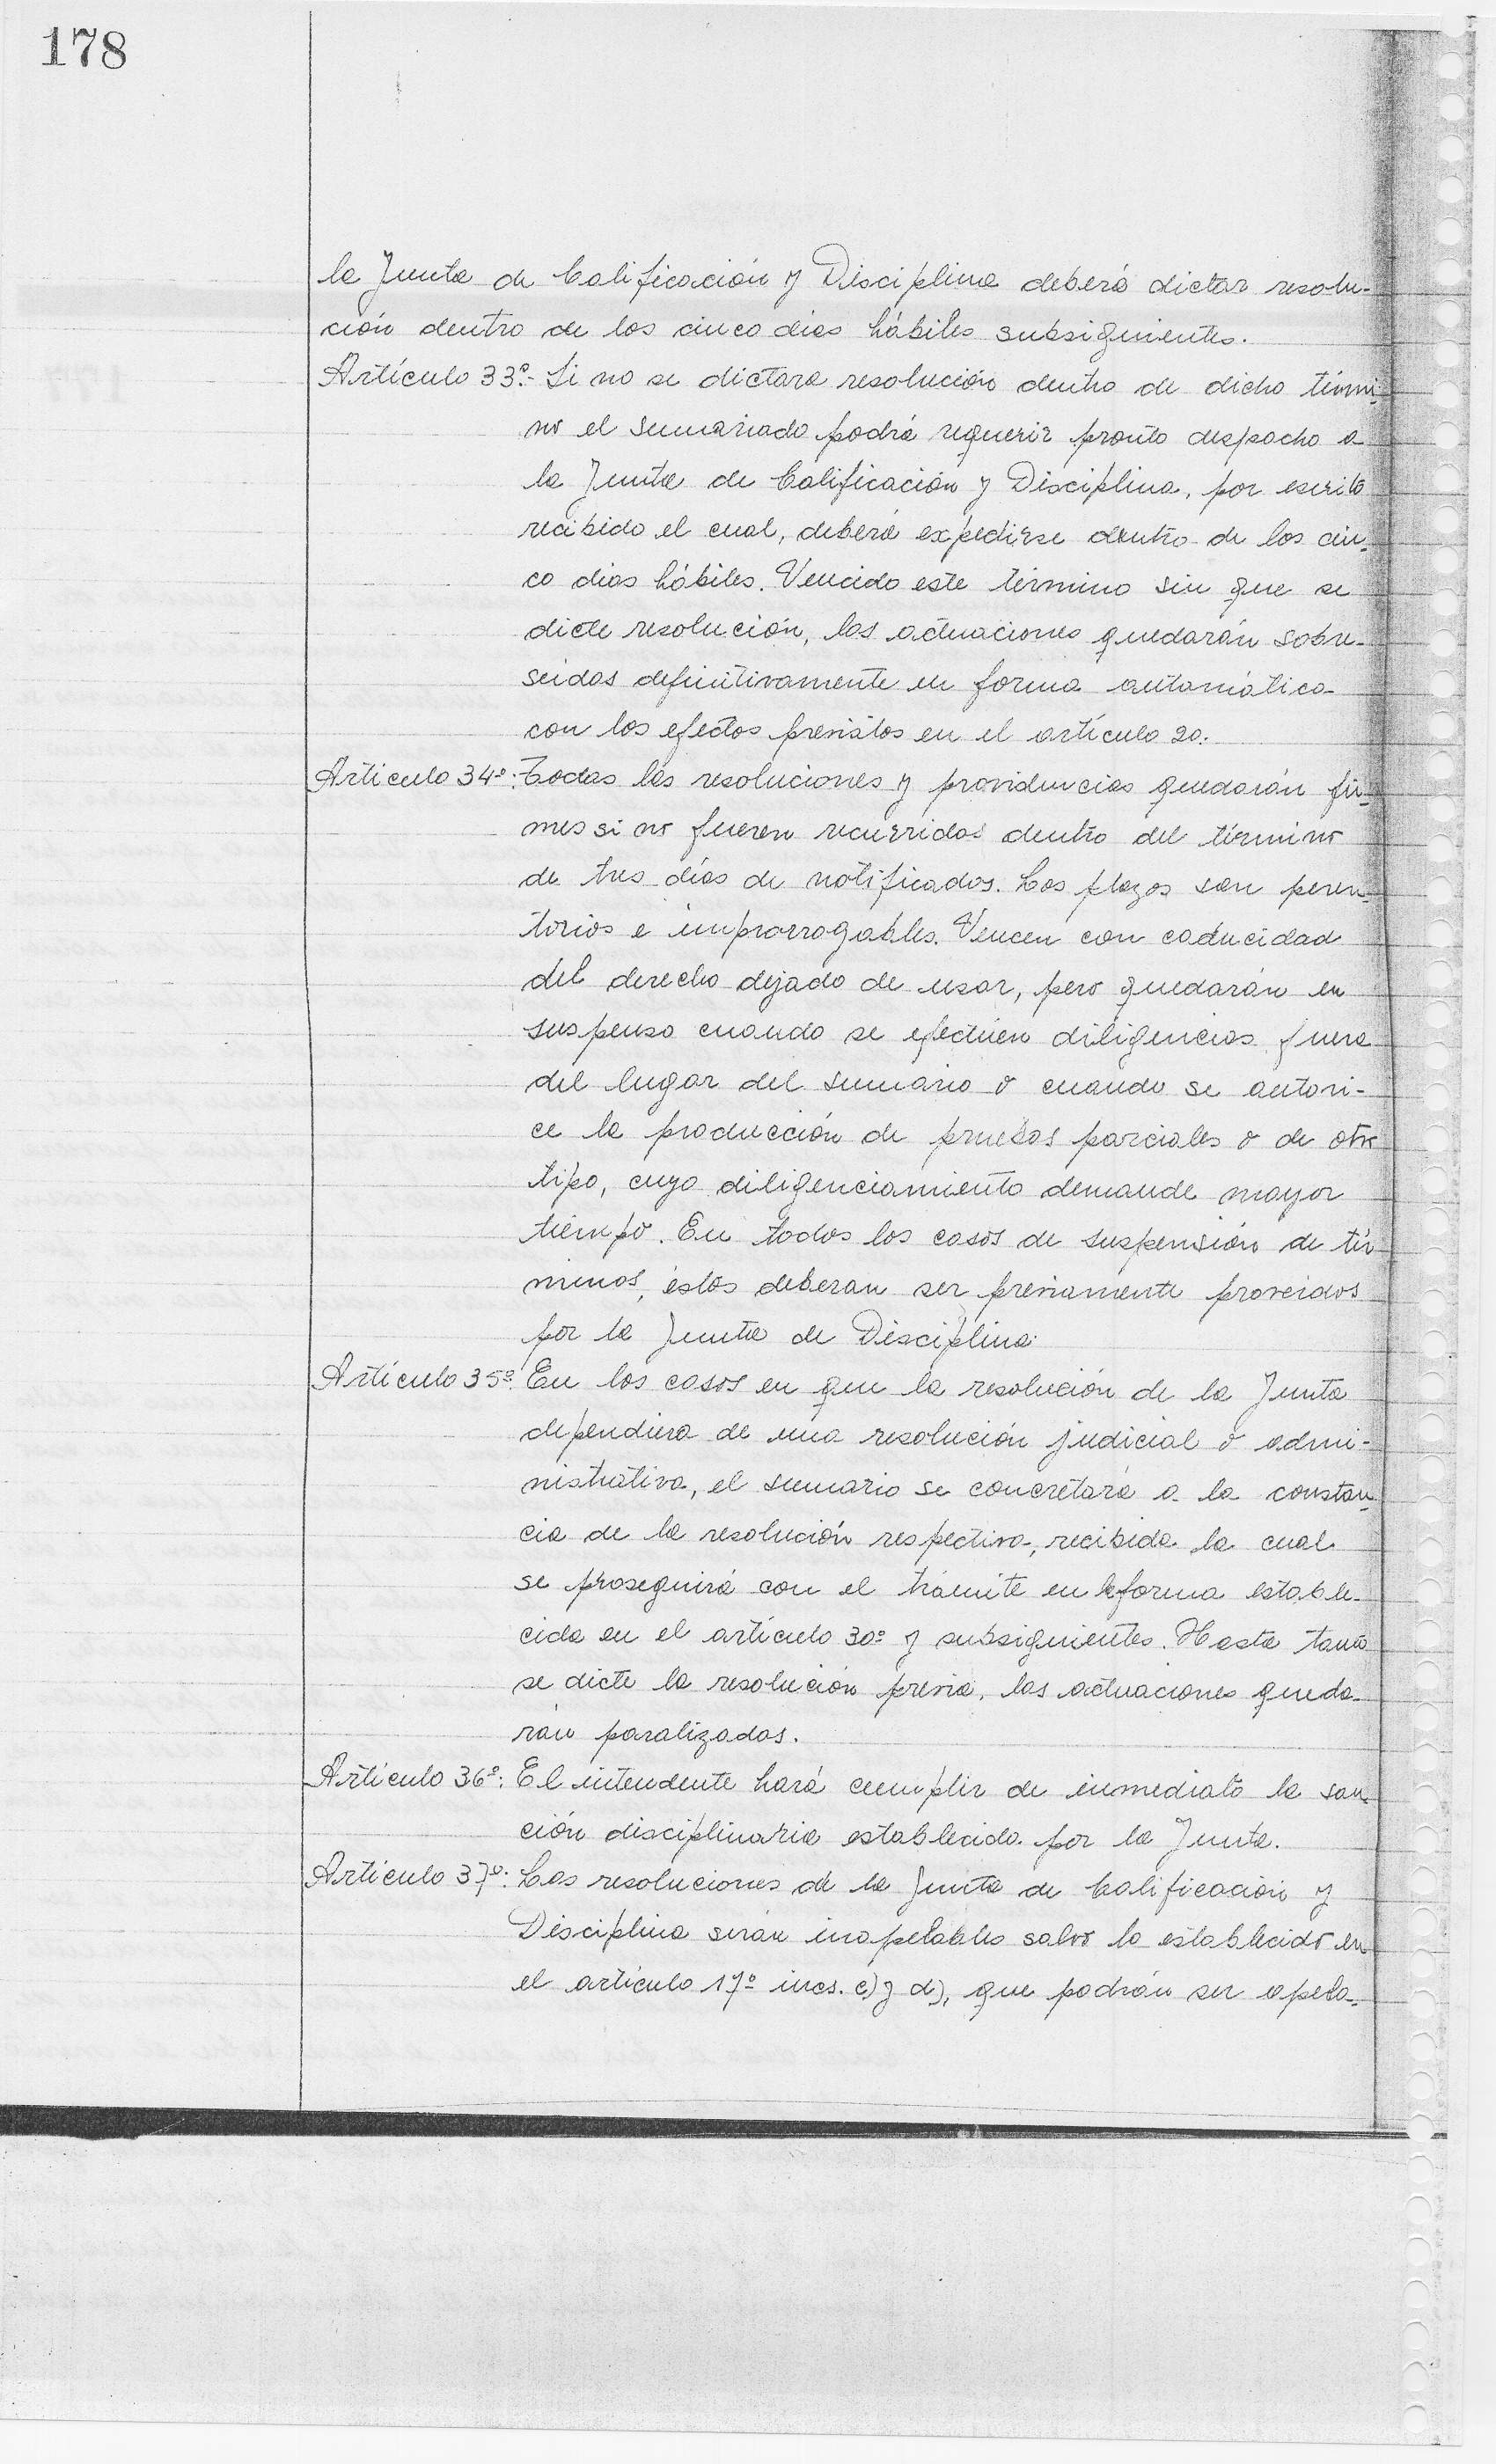 178
la Junta de Calificación y Disciplina deberá dictar resolu-
ción dentro de los cinco días hábiles subsiguientes.
Artículo 33º.- Si no se dictara resolución dentro de dicho térmi-
no el sumariado podrá requerir pronto despacho a
la Junta de Calificación y Disciplina, por escrito
recibido el cual, deberá expedirse dentro de los cin-
co días hábiles. Vencido este término sin que se
dicte resolución, las actuaciones quedarán sobre-
seídas definitivamente en forma automática
con los efectos previstos en el artículo 20.
Artículo 34º: Todas las resoluciones y providencias quedarán fir-
mes si no fueren recurridas dentro del término
de tres días de notificados. Los plazos son peren-
torios e improrrogables. Vencen con caducidad
del derecho dejado de usar, pero quedarán en
suspenso cuando se efectúen diligencias fuera
del lugar del sumario o cuando se autori-
ce la producción de pruebas parciales o de otro
tipo, cuyo diligenciamiento demande mayor
tiempo. En todos los casos de suspensión de tér
minos, éstos deberan ser previamente proveídos
por la Junta de Disciplina.
Artículo 35º: En los casos en que la resolución de la Junta
dependiera de una resolución judicial o admi-
nistrativa, el sumario se concretará a la constan-
cia de la resolución respectiva, recibida la cual
se proseguirá con el trámite en la forma estable-
cida en el artículo 30º y subsiguientes. Hasta tanto
se dicte la resolución previa, las actuaciones queda-
rán paralizadas.
Artículo 36º: El intendente hará cumplir de inmediato la san-
ción disciplinaria establecida por la Junta.
Artículo 37º: Las resoluciones de la Junta de Calificación y
Disciplina serán inapelables salvo lo establecido en
el artículo 17º incs. c) y d), que podrán ser apela-